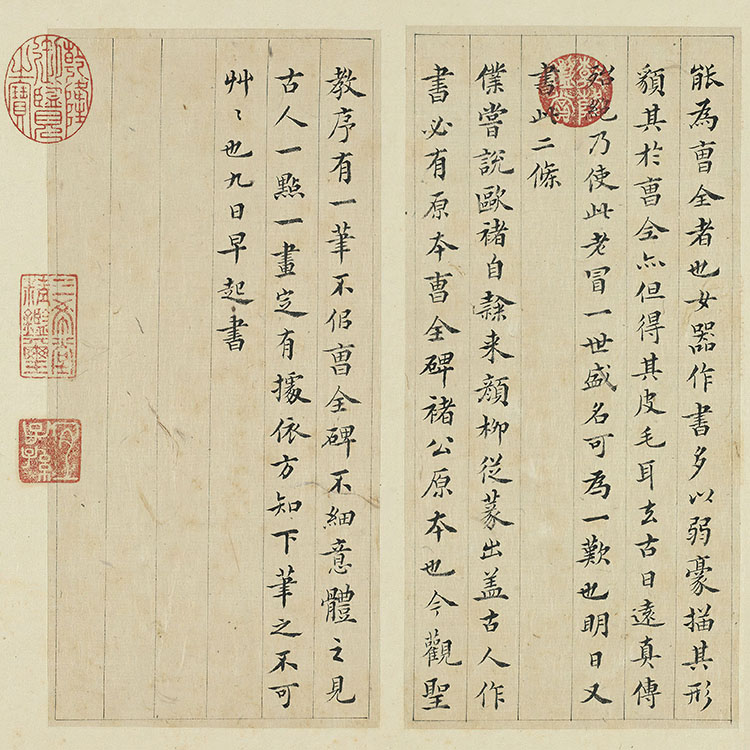 能為曹全者也女器作書多以弱豪描其形
貌其於曹仝亦但得其皮毛耳去古日遠真傳
殆絕乃使此老冒一世盛名可為一歎也明日又
書此二條
僕嘗說歐褚自隸来顔柳從篆出盖古人作
書必有原本曹全碑褚公原本也今觀聖
教序有一筆不似曹全碑不細意體之見
古人一點一畫定有據依方知下筆之不可
艸〻也九日早起書
乾隆鑑賞
乾隆御覽之寶
三希堂精鑑璽
宜子孫